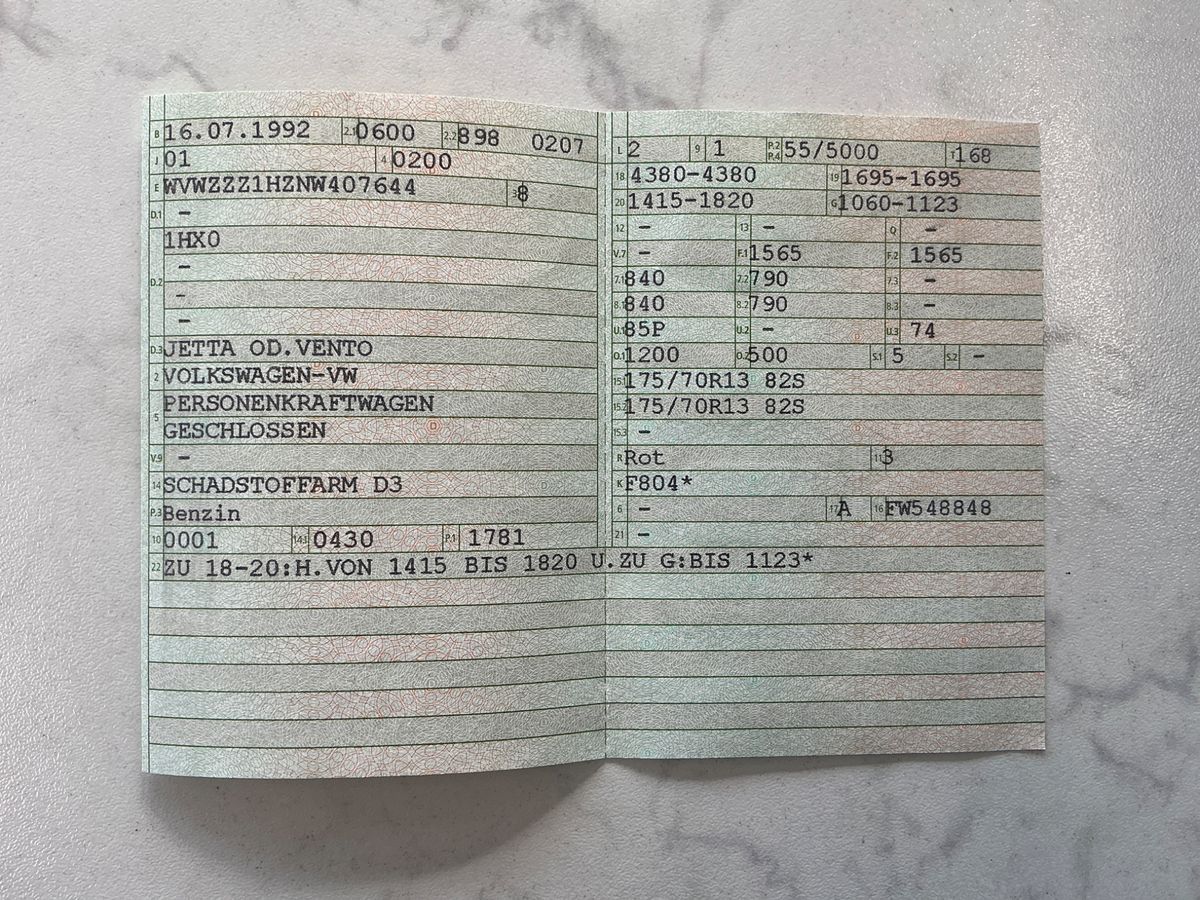 B 16.07.1992 2.1 0600 2.2 898 0207
J 01 4 0200
E WVWZZZ1HZNW407644 3 8
D.1 –
1HX0
D.2 –
–
–
D.3 JETTA OD.VENTO
2 VOLKSWAGEN-VW
5 PERSONENKRAFTWAGEN
GESCHLOSSEN
V.9 –
14 SCHADSTOFFARM D3
P.3 Benzin
10 0001 14.1 0430 P.1 1781
L 2 9 1 P.2 P.4 55/5000 T 168
18 4380-4380 19 1695-1695
20 1415-1820 G 1060-1123
12 – 13 – Q –
V.7 – F.1 1565 F.2 1565
7.1 840 7.2 790 7.3 –
8.1 840 8.2 790 8.3 –
U.1 85P U.2 – U.3 74
O.1 1200 O.2 500 S.1 5 S.2 –
15.1 175/70R13 82S
15.2 175/70R13 82S
15.3 –
R Rot 11 3
K F804*
6 – 17 A 16 FW548848
21 –
22 ZU 18-20:H.VON 1415 BIS 1820 U.ZU G:BIS 1123*